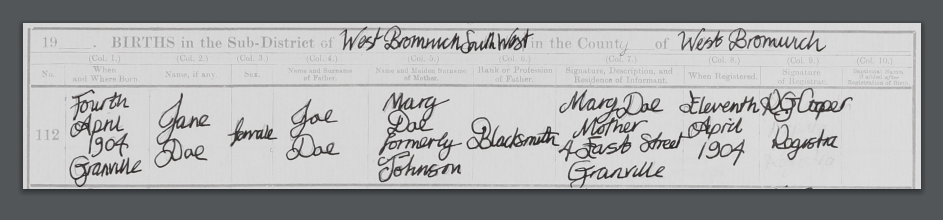 19 . BIRTHS in the Sub-District of West Bromwich South West in the County of West Bromwich
(Col. 1.) (Col. 2.) (Col. 3.) (Col. 4.) (Col. 5.) (Col. 6.) (Col. 7.) (Col. 8.) (Col. 9.) (Col. 10.)
No. When and Where Born. Name, if any Sex. Name and Surname of Father. Name and Maiden Surname of Mother. Rank or Profession of Father. Signature, Description, and Residence of Informant. When Registered. Signature of Registrar.
112
Fourth
April
1904
Granville
Jane
Doe
female
Joe
Doe
Mary
Doe
formerly
Johnson
Blacksmith
Mary Doe
Mother
4 East Street
Granville
Eleventh
April
1904
RG Cooper
Registra